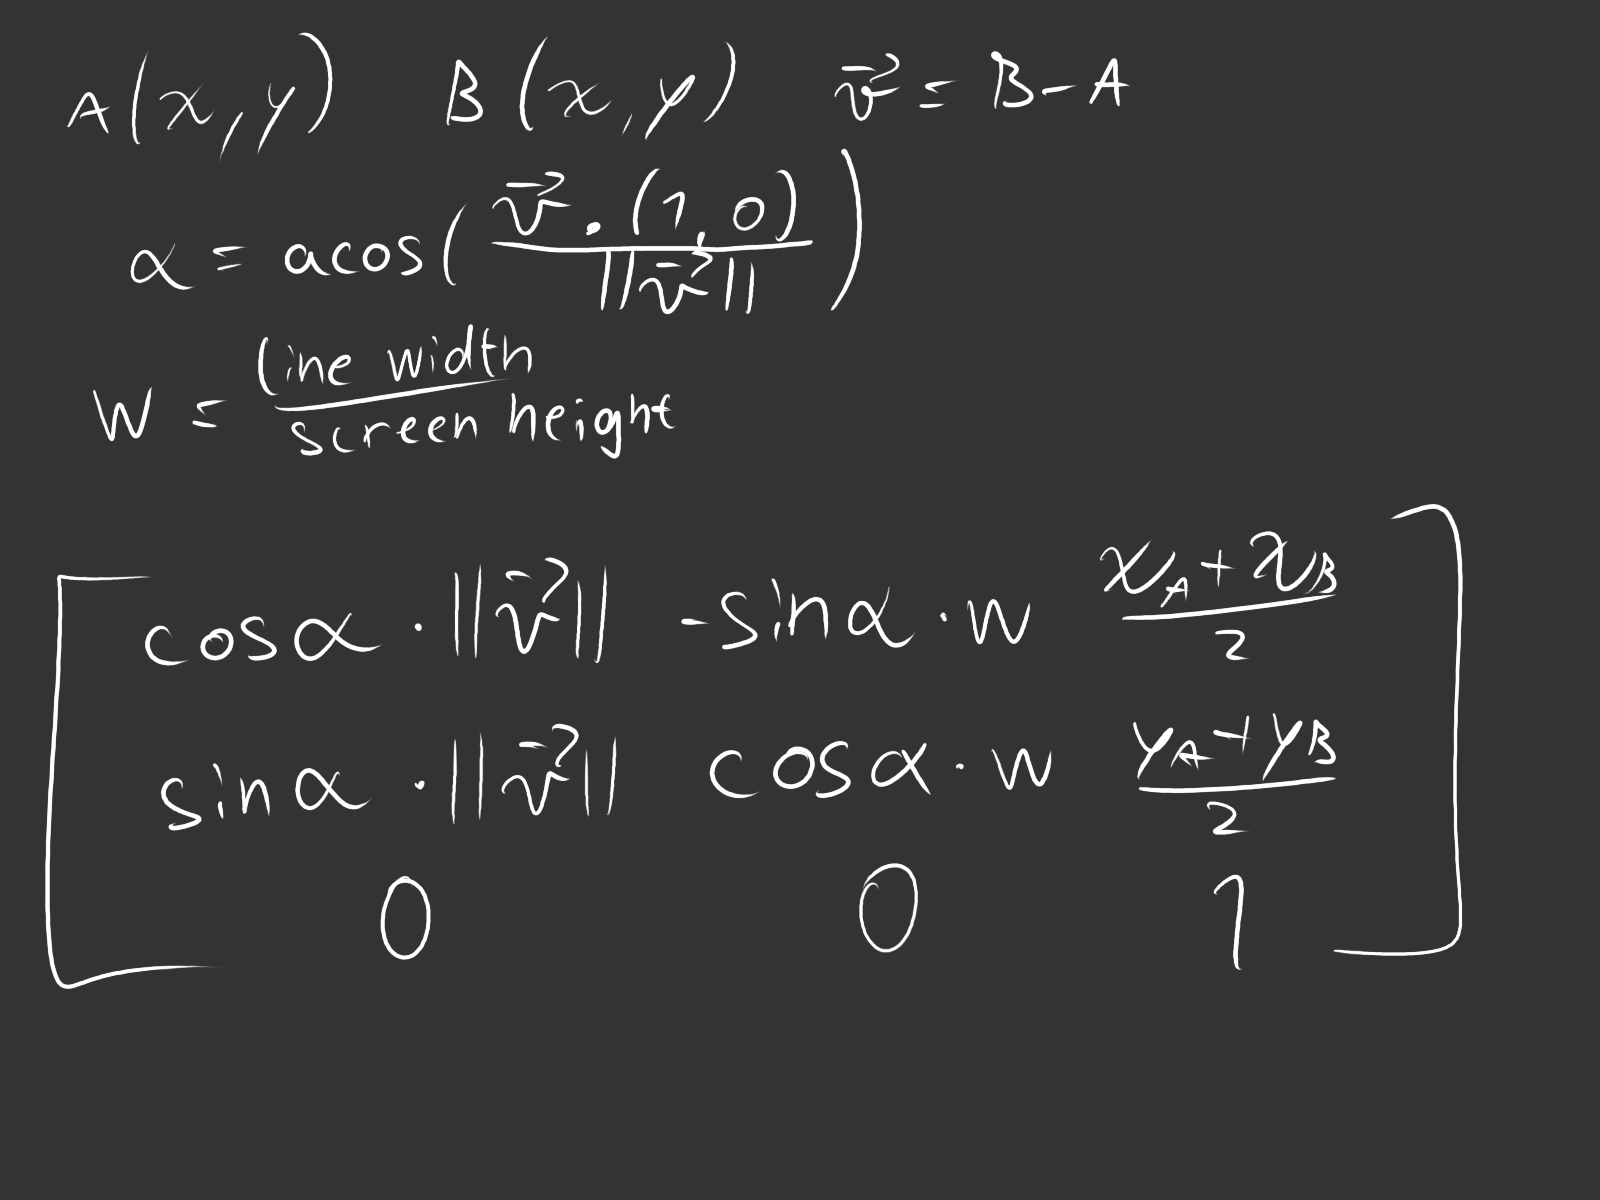 A(x,y) B(x,y) v⃗ = B-A
α = acos( v⃗ . (1,0) / ||v⃗|| )
W = line width / screen height
cosα · ||v⃗|| -sinα · W (x_A + x_B) / 2
sinα · ||v⃗|| cosα · W (y_A + y_B) / 2
0 0 1